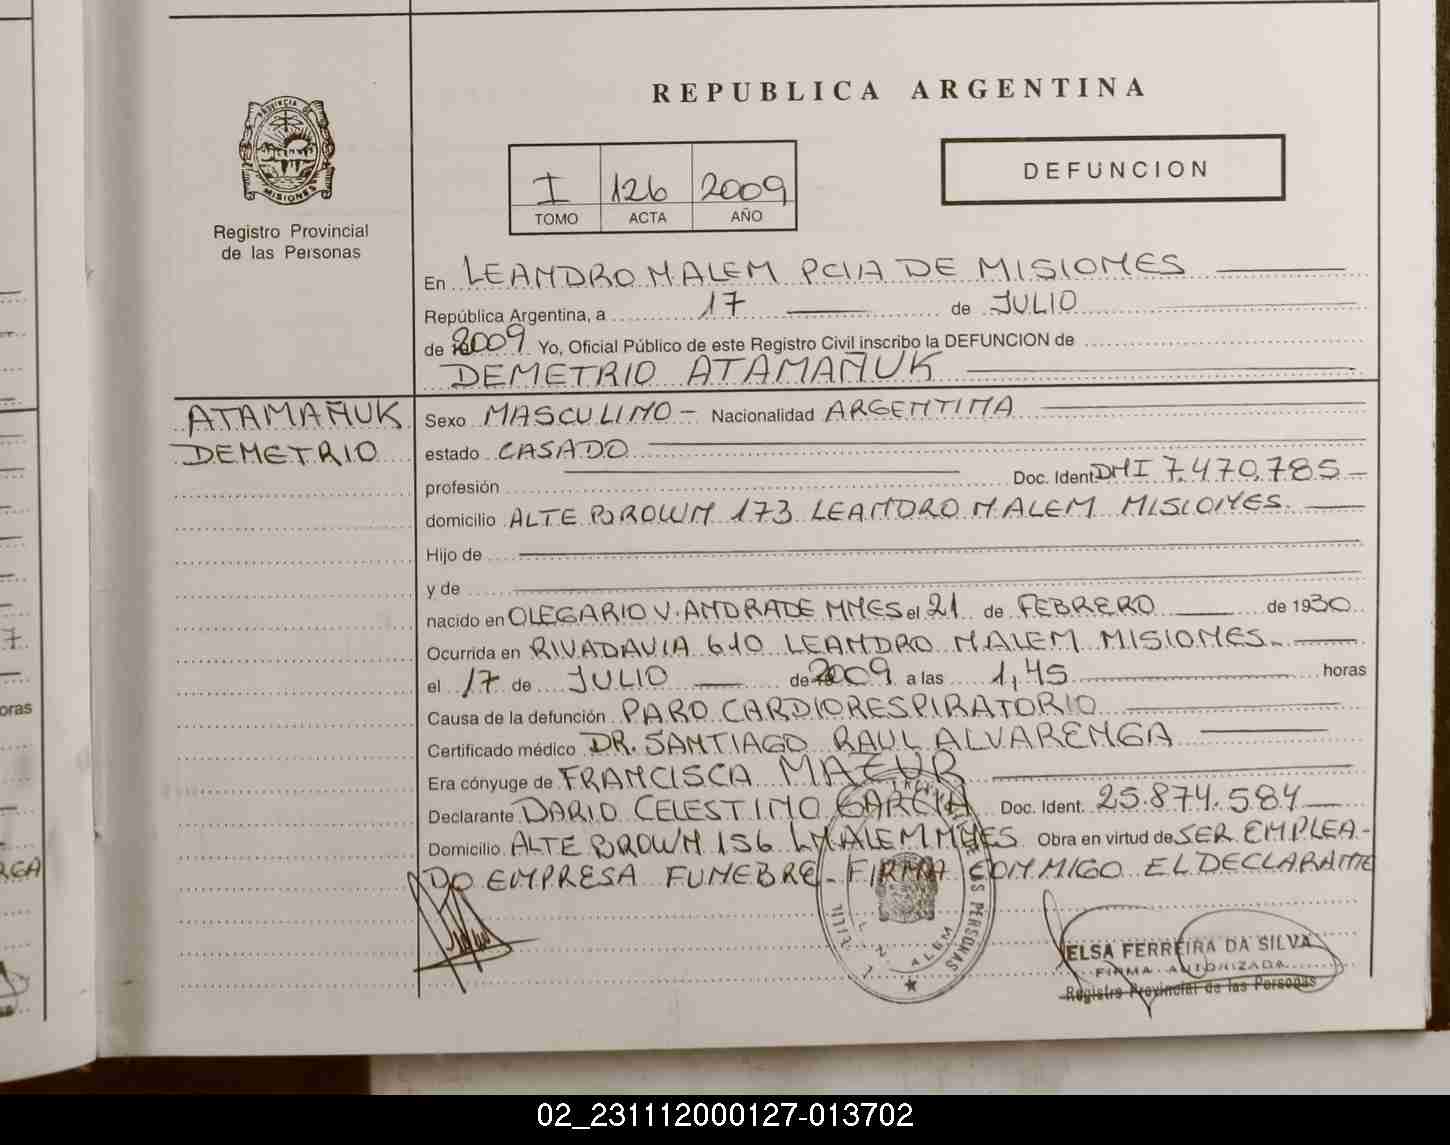 REPUBLICA ARGENTINA
PROVINCIA DE
MISIONES
Registro Provincial
de las Personas
I 126 2009
TOMO ACTA AÑO
DEFUNCION
En LEANDRO N.ALEM PCIA DE MISIONES
República Argentina, a 17 de JULIO
de 2009 Yo, Oficial Público de este Registro Civil inscribo la DEFUNCION de
DEMETRIO ATAMAÑUK
ATAMAÑUK
DEMETRIO
Sexo MASCULINO - Nacionalidad ARGENTINA
estado CASADO
profesión Doc. Ident DNI 7.470.785 -
domicilio ALTE BROWN 173 LEANDRO N.ALEM MISIONES.
Hijo de
y de
nacido en OLEGARIO V. ANDRADE MNES el 21 de FEBRERO de 1930
Ocurrida en RIVADAVIA 610 LEANDRO N.ALEM MISIONES.
el 17 de JULIO de 2009 a las 1,45 horas
Causa de la defunción PARO CARDIORESPIRATORIO
Certificado médico DR. SANTIAGO RAUL ALVARENGA
Era cónyuge de FRANCISCA MAZUR
Declarante DARIO CELESTINO GARCIA Doc. Ident. 25.874.584
Domicilio ALTE BROWN 156 LNALEM MNES Obra en virtud de SER EMPLEA-
DO EMPRESA FUNEBRE - FIRMA CONMIGO EL DECLARANTE
L. N. ALEM
ELSA FERREIRA DA SILVA
FIRMA AUTORIZADA
Registro Provincial de las Personas
oras
7.
02_231112000127-013702